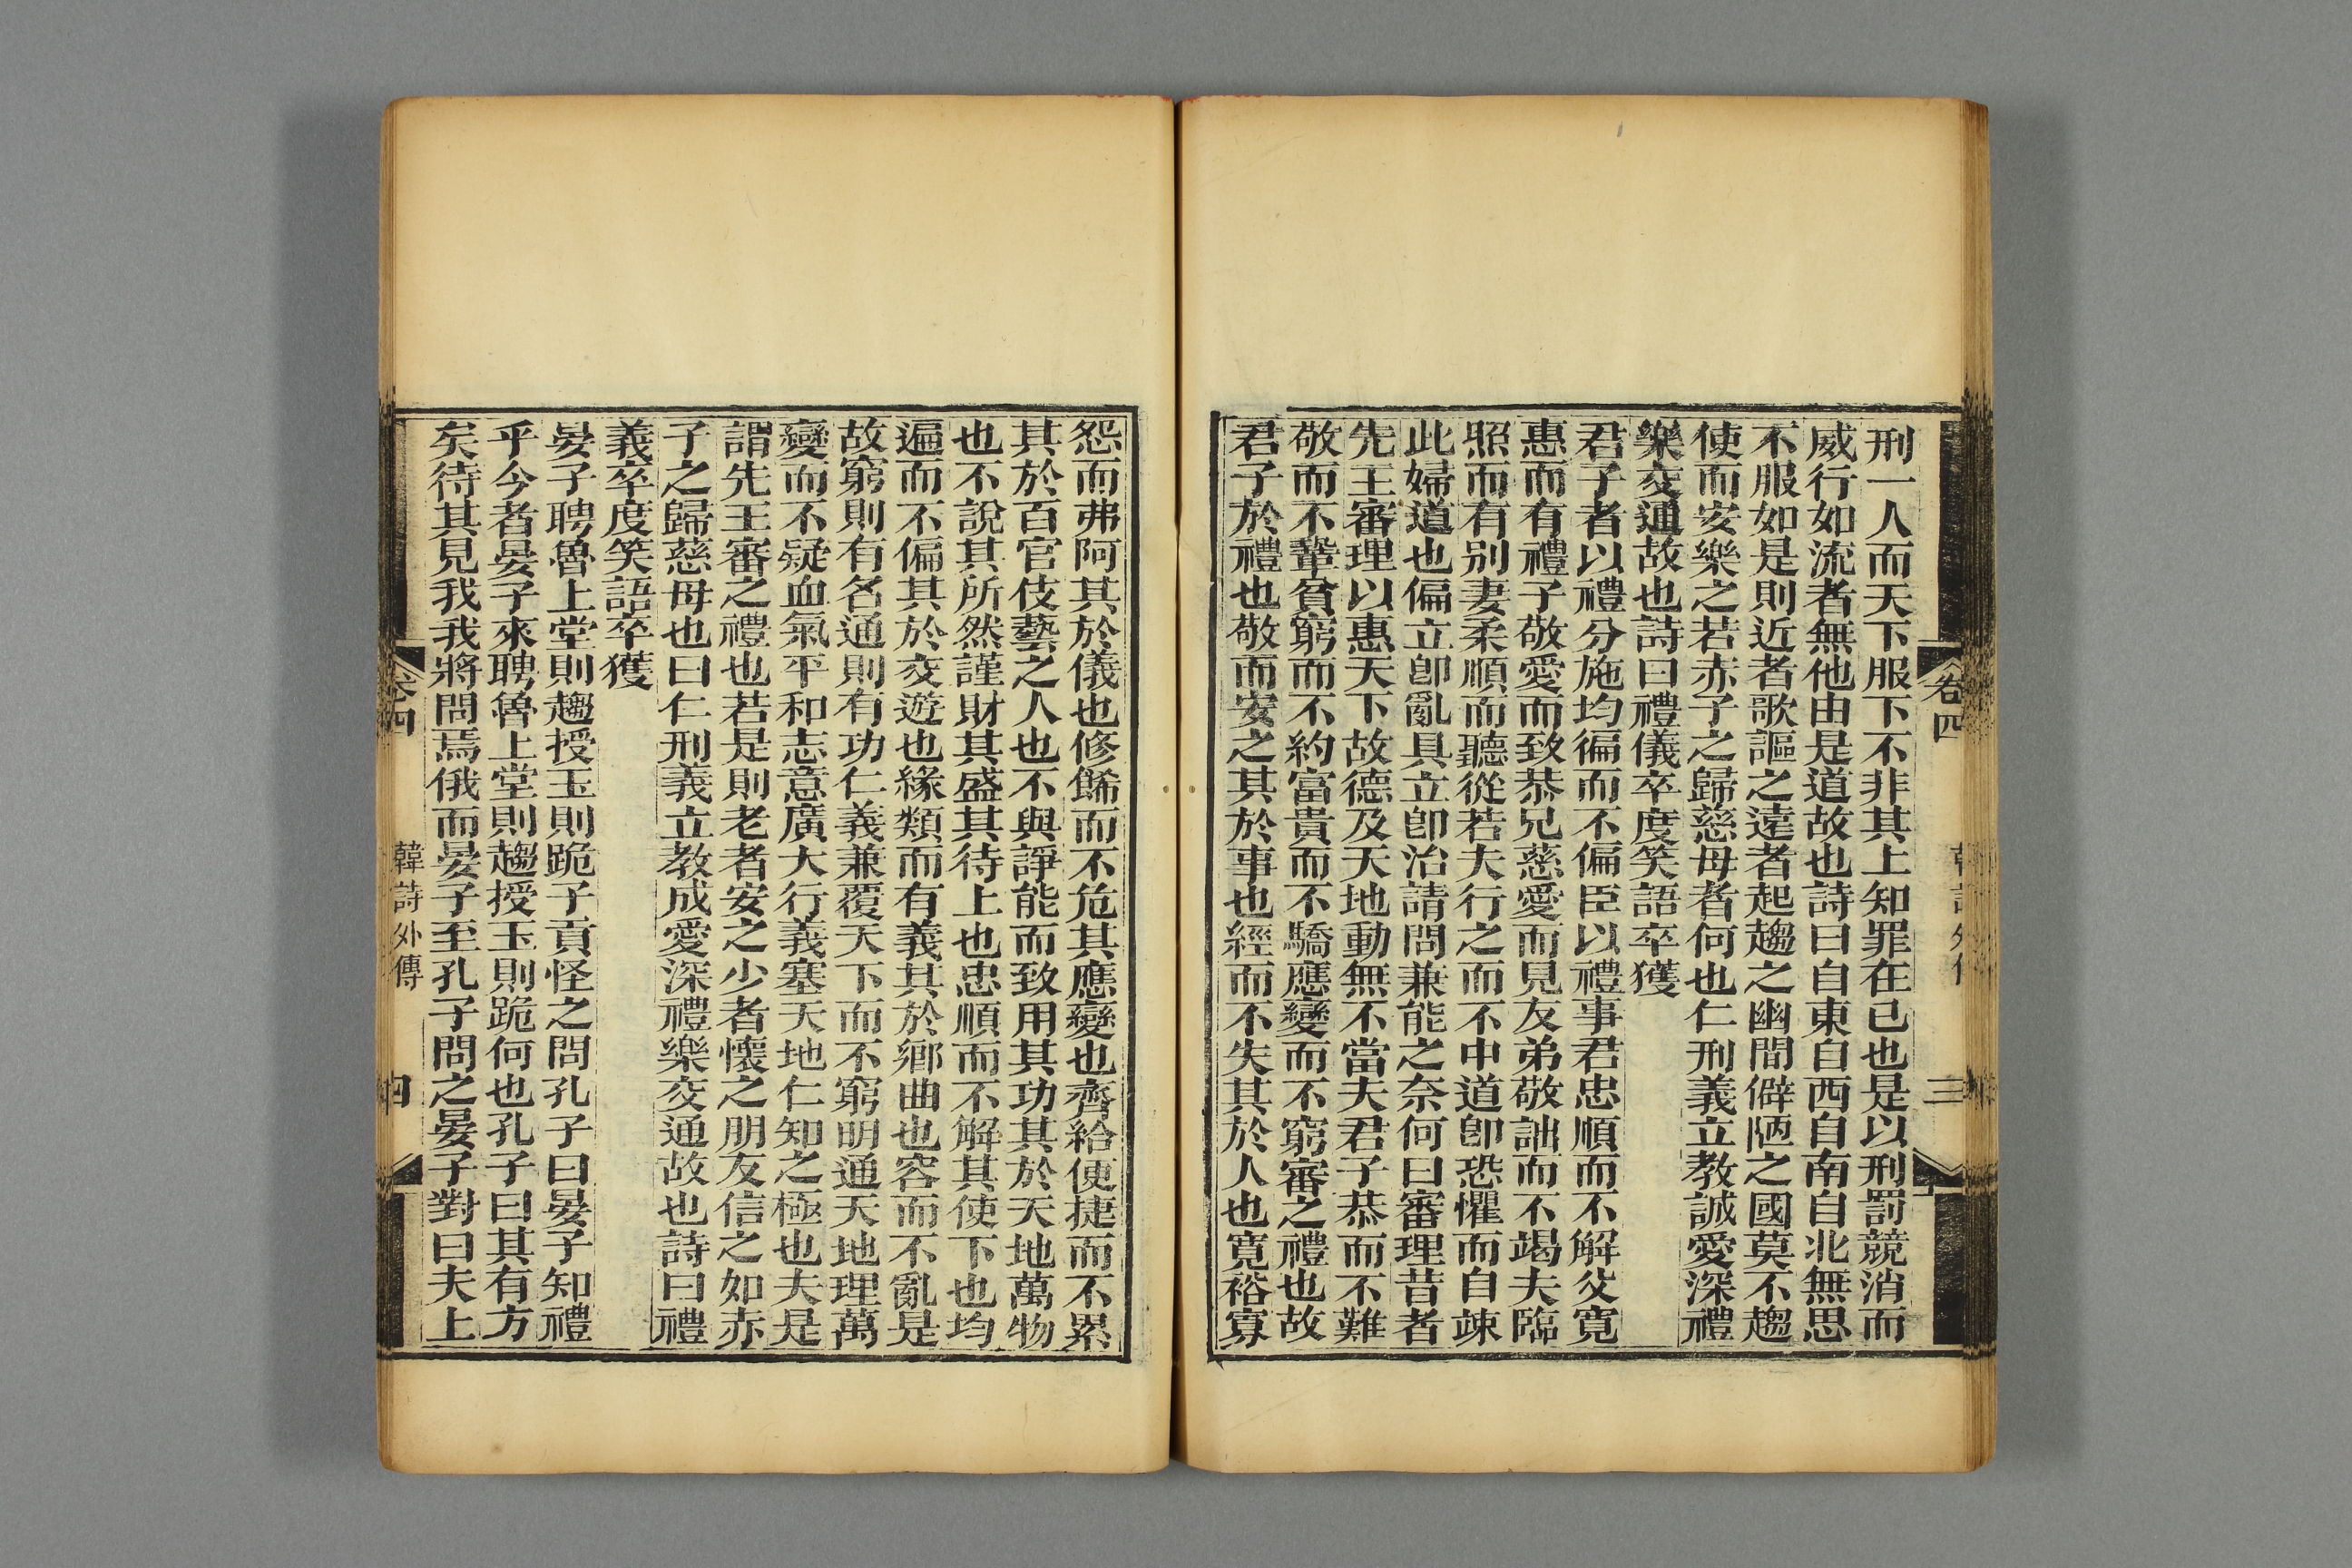 刑一人而天下服下不非其上知罪在已也是以刑罰競消而
威行如流者無他由是道故也詩曰自東自西自南自北無思
不服如是則近者歌謳之遠者起趨之幽閒僻陋之國莫不趨
使而安樂之若赤子之歸慈母者何也仁刑義立教誠愛深禮
樂交通故也詩曰禮儀卒度笑語卒獲
君子者以禮分施均徧而不偏臣以禮事君忠順而不解父寛
惠而有禮子敬愛而致恭兄慈愛而見友弟敬詘而不竭夫臨
照而有别妻柔順而聽從若夫行之而不中道卽恐懼而自竦
此婦道也偏立卽亂具立卽治請問兼能之奈何曰審理昔者
先王審理以惠天下故德及天地動無不當夫君子恭而不難
敬而不鞏貧窮而不約富貴而不驕應變而不窮審之禮也故
君子於禮也敬而安之其於事也經而不失其於人也寛裕寡
卷四
三
怨而弗阿其於儀也修餙而不危其應變也齊給便捷而不累
其於百官伎藝之人也不與諍能而致用其功其於天地萬物
也不說其所然謹財其盛其待上也忠順而不解其使下也均
遍而不偏其於交遊也緣類而有義其於鄉曲也容而不亂是
故窮則有名通則有功仁義兼覆天下而不窮明通天地理萬
變而不疑血氣平和志意廣大行義塞天地仁知之極也夫是
謂先王審之禮也若是則老者安之少者懷之朋友信之如赤
子之歸慈母也曰仁刑義立教成愛深禮樂交通故也詩曰禮
義卒度笑語卒獲
晏子聘魯上堂則趨授玉則跪子貢怪之問孔子曰晏子知禮
乎今者晏子來聘魯上堂則趨授玉則跪何也孔子曰其有方
矣待其見我我將問焉俄而晏子至孔子問之晏子對曰夫上
卷四
韓詩外傳
四